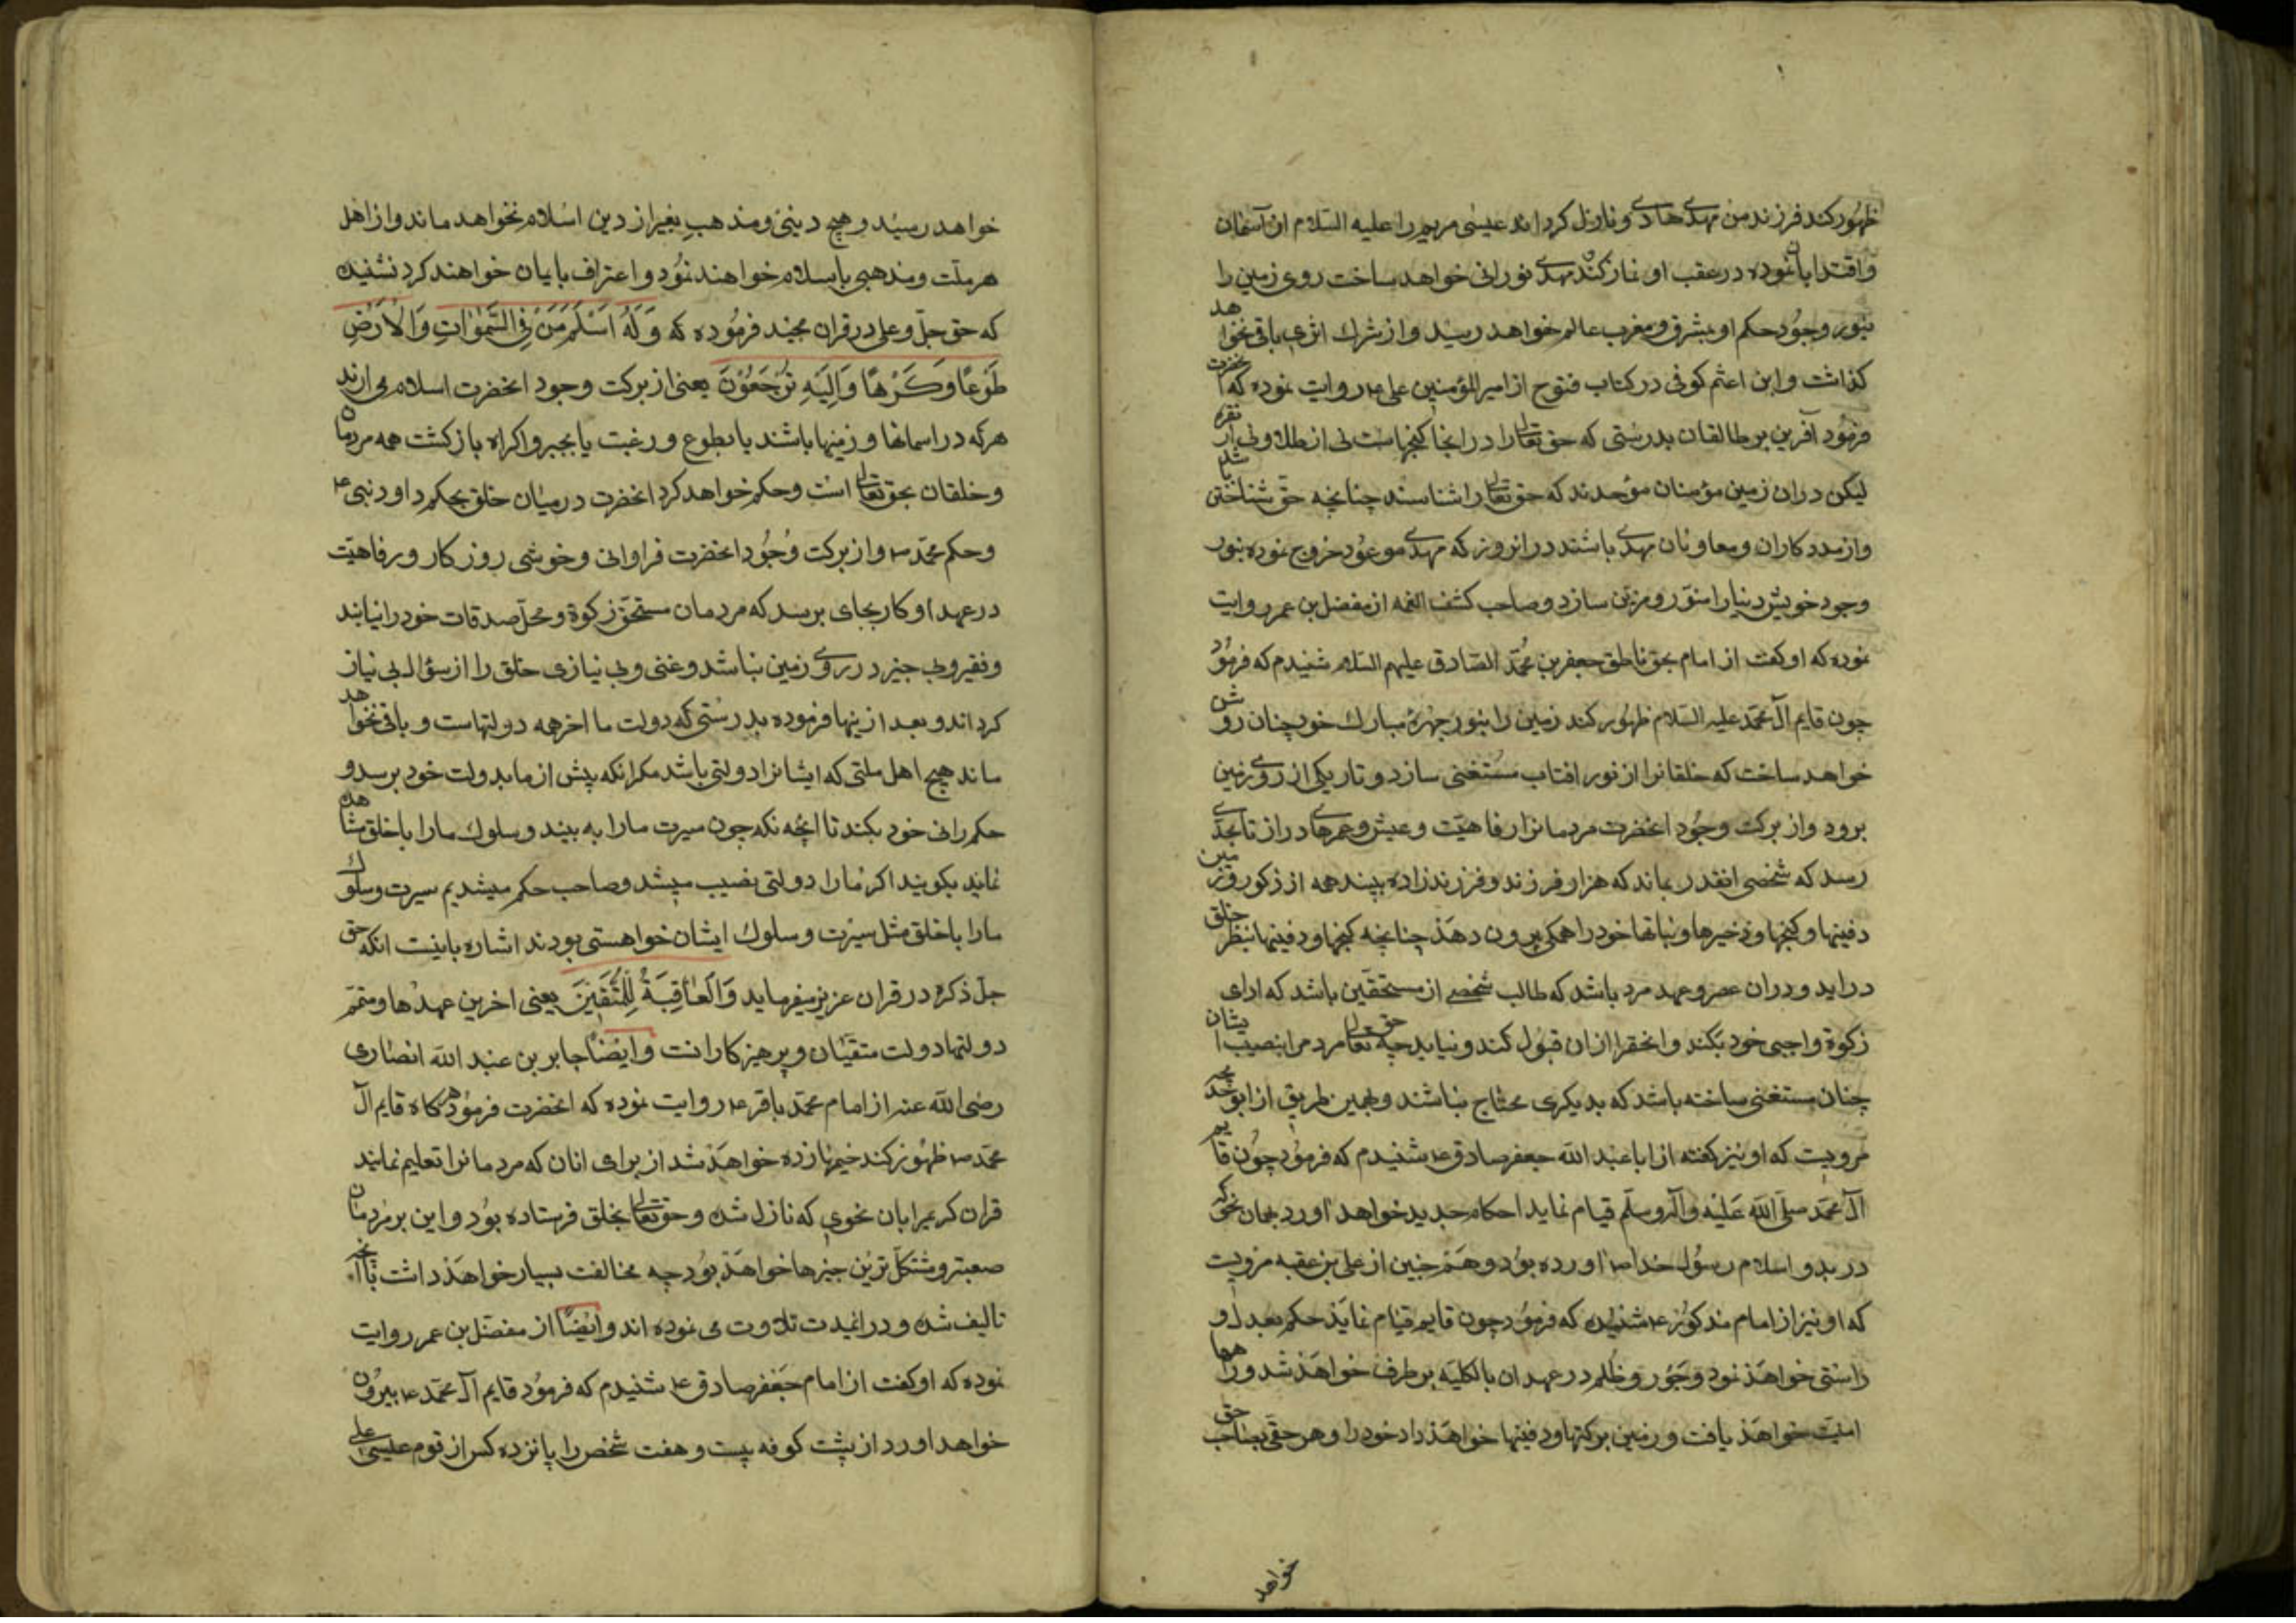 ظهور کند فرزند من مهدی هادی و نازل کرداند عیسی مریم را علیه السلام از آسمان
واقتدا بان نموده در عقب او نماز کند مهدی نورانی خواهد ساخت روی زمین را
بنور وجود حکم او بمشرق و مغرب عالم خواهد رسید و از شرک اثری باقی نخواهد
کذاشت و ابن اعثم کوفی در کتاب فتوح از امیر المؤمنین علی ع روایت نموده که انحضرت
فرمود آفرین بر طالقان بدرستی که حق تعالی را در انجا کنجهاست نی از طلا و نی از نقره
لیکن دران زمین مؤمنان موحدند که حق تعالی را شناسند چنانچه حق شناختن باشد
و از مددکاران و معاونان مهدی باشند در انروز که مهدی موعود خروج نموده بنور
وجود خویش دنیا را منور و مزین سازد و صاحب کشف الغمه از مفضل بن عمر روایت
نموده که او کفت از امام بحق ناطق جعفر بن محمد الصادق علیهم السلام شنیدم که فرمود
چون قایم آل محمد علیه السلام ظهور کند زمین را بنور چهرهٔ مبارک خود چنان روشن
خواهد ساخت که خلقانرا از نور افتاب مستغنی سازد و تاریکی از روی زمین
برود و از برکت وجود انحضرت مردمانرا رفاهیت و عیش و عمرهای دراز تا بحدی
رسد که شخصی انقدر بماند که هزار فرزند و فرزندزاده ببیند همه از ذکور و زمین
دفینها و کنجها و ذخیرها و نباتها خود را همکی بیرون دهد چنانچه کنجها و دفینها بنظر خلق
در اید و دران عصر و عهد مرد باشد که طالب شخصی از مستحقین باشد که ادای
زکوة واجبی خود بکند و انحقرا ازان قبول کند و نیابد چه حق تعالی مردم را بنصیب ایشان
چنان مستغنی ساخته باشد که بدیکری محتاج نباشند و بهمین طریق از ابو خدیجه
مرویست که او نیز کفته از ابا عبد الله جعفر صادق ع شنیدم که فرمود چون قایم
آل محمد صلی الله علیه وآله وسلم قیام نماید احکام جدید خواهد اورد بدان نحو که
در بدو اسلام رسول خدا ص اورده بود و همچنین از علی بن عقبه مرویست
که او نیز از امام مذکور ع شنیده که فرمود چون قایم قیام نماید حکم بعدل و
راستی خواهد نمود و جور و ظلم در عهد ان بالکلیه بر طرف خواهد شد و راهها
امنیت خواهد یافت و زمین برکتها و دفینها خواهد داد خود را و هر حقی بصاحب حق
خواهد
خواهد رسید و هیچ دینی و مذهب بغیر از دین اسلام نخواهد ماند و از اهل
هر ملت و مذهبی باسلام خواهند نمود و اعتراف بایمان خواهند کرد نشنیده
که حق جل و علی در قران مجید فرموده که وَلَهُ اَسْلَمَ مَنْ فِی السَّمٰوَاتِ وَالْاَرْضِ
طَوْعًا وَکَرْهًا وَاِلَیْهِ تُرْجَعُوْنَ یعنی از برکت وجود انحضرت اسلام می ارند
هر که در اسمانها و زمینها باشند یا بطوع و رغبت یا بجبر و اکراه بازکشت همه مردمان
و خلقان بحق تعالی است و حکم خواهد کرد انحضرت در میان خلق بحکم داود نبی ع
و حکم محمد ص و از برکت وجود انحضرت فراوانی و خوشی روزکار و رفاهیت
در عهد او کار بجای برسد که مردمان مستحق زکوة و محل صدقات خود را نیابند
و فقیر و بی چیز در روی زمین نباشد و غنی و بی نیازی خلق را از سؤال بی نیاز
کرداند و بعد ازینها فرموده بدرستی که دولت ما اخر همه دولتهاست و باقی نخواهد
ماند هیچ اهل ملتی که ایشانرا دولتی باشد مکر انکه پیش از ما بدولت خود برسد و
حکم رانی خود بکند تا انچه نکه چون سیرت ما را به بیند و سلوک ما را با خلق مشاهده
نماید بکویند اکر ما را دولتی نصیب میشد و صاحب حکم میشدیم سیرت و سلوک
ما را با خلق مثل سیرت و سلوک ایشان خواهستی بودند اشاره باینست انکه حق
جل ذکره در قران عزیز میفرماید وَالْعَاقِبَةُ لِلْمُتَّقِیْنَ یعنی اخرین عهدها و متمم
دولتها دولت متقیان و پرهیزکارانت وایضاً جابر بن عبد الله انصاری
رضی الله عنه از امام محمد باقر ع روایت نموده که انحضرت فرمود هرکاه قایم آل
محمد ص ظهور کند خیمها زده خواهد شد از برای انان که مردمانرا تعلیم نمایند
قران کریم را بان نحوی که نازل شده و حق تعالی بخلق فرستاده بود و این بر مردمان
صعبتر و مشکل ترین چیزها خواهد بود چه مخالفت بسیار خواهد داشت با انچه
تالیف شده و در انمدت تلاوت می نموده اند وایضاً از مفضل بن عمر روایت
نموده که او کفت از امام جعفر صادق ع شنیدم که فرمود قایم آل محمد ع بیرون
خواهد اورد از پشت کوفه بیست و هفت شخص را پانزده کس از قوم عیسی علی